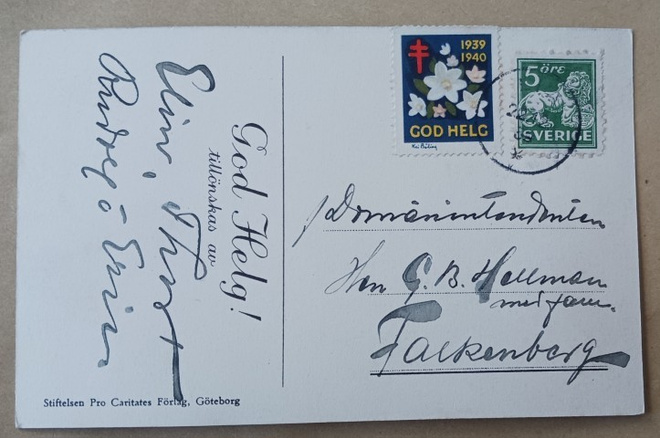 God Helg!
tillönskas av
Elin, Thost
Stiftelsen Pro Caritates Förlag, Göteborg
1939
1940
GOD HELG
5 ÖRE
SVERIGE
Domänintendenten
Herr G. B. Hellman
med fam.
Falkenberg